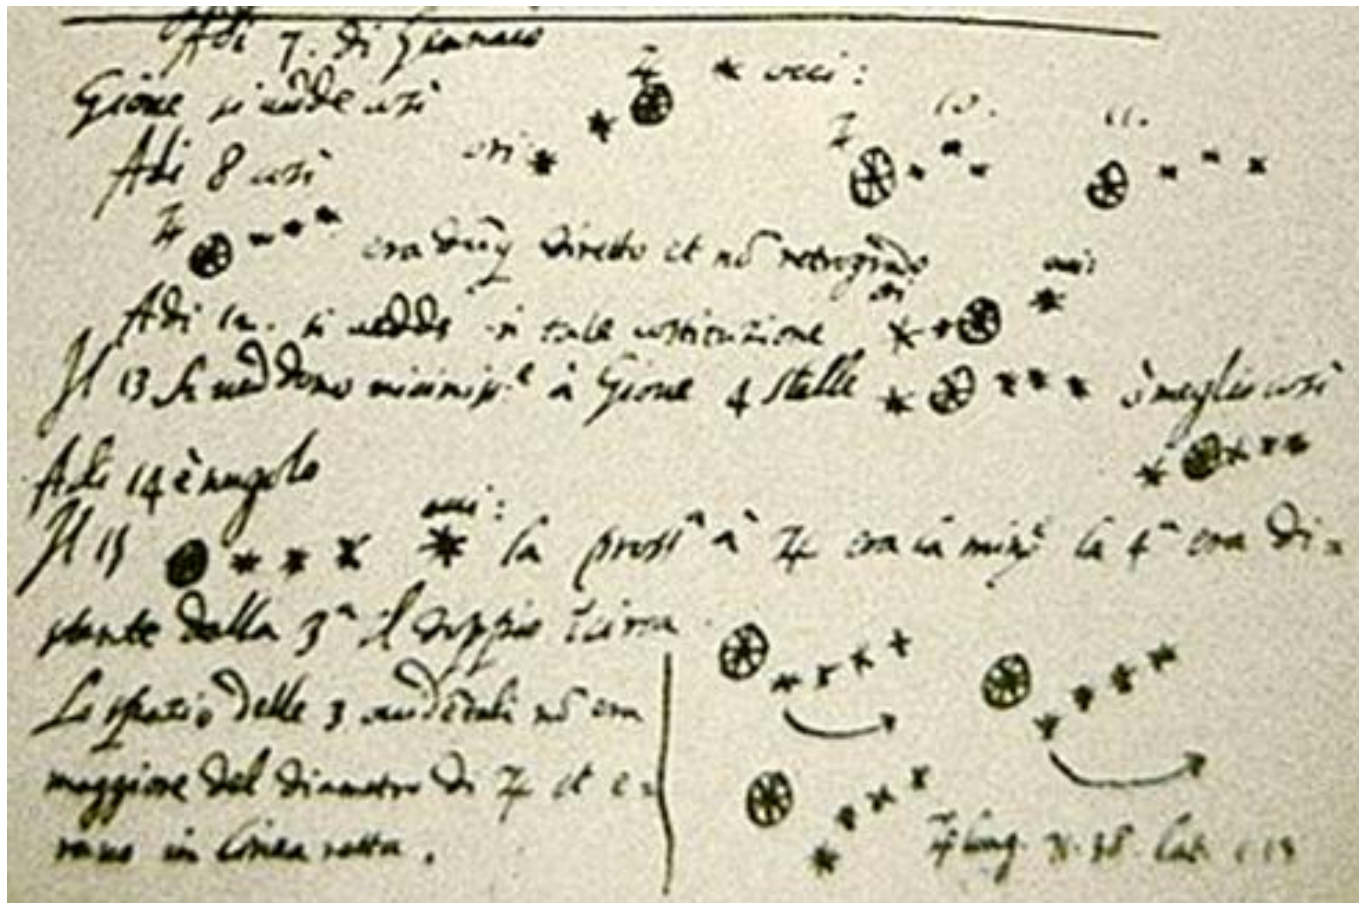 Adi 7. di Gennaio
Gione si vede così
♃ occi:
ori
Adi 8 così
♃ 10. 11.
♃ era dũq diretto et nõ retrogrado
ori occi:
Adi 12. si vedde in tale costituzione
Il 13 si veddono à Gione 4 stelle è meglio così
Adi 14 è nugolo
Il 15 occi: la prossᵃ à ♃ era la minᵉ la 4ᵃ era di=
stante dalla 3ᵃ il doppio circa
Lo spatio delle 3 occidẽtali nõ era
maggiore del diametro di ♃ et e=
rano in linea retta.
♃ long. lat.